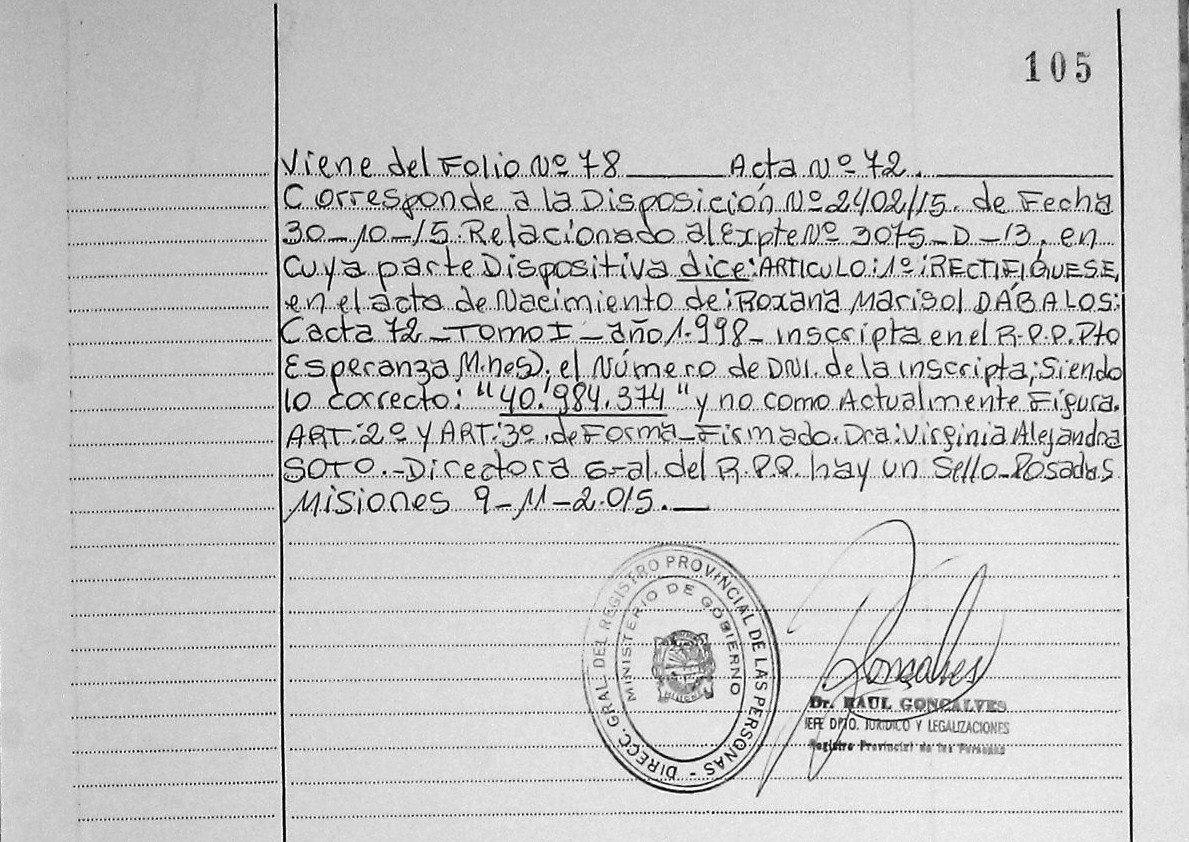 105
Viene del Folio Nº 78 ______ Acta Nº 72.______
Corresponde a la Disposición Nº 2402/15. de Fecha
30-10-15. Relacionado al Expte Nº 3075-D-13, en
cuya parte Dispositiva dice: ARTICULO: 1º: RECTIFÍQUESE,
en el acta de Nacimiento de: Roxana Marisol DÁBALOS:
(acta 72 - TOMO I - año 1.998 - inscripta en el R.P.P. Pto
Esperanza, M.nes), el Número de DNI. de la inscripta; Siendo
lo correcto: "40.984.374" y no como Actualmente Figura.
ART: 2º Y ART: 3º de Forma - Firmado. Dra: Virginia Alejandra
SOTO.- Directora Gral. del R.P.P. hay un Sello - Posadas
Misiones 9-11-2.015.__
DIRECC. GRAL. DEL REGISTRO PROVINCIAL DE LAS PERSONAS -
MINISTERIO DE GOBIERNO
MISIONES
Gonçalves
Dr. RAUL GONÇALVES
JEFE DPTO. JURIDICO Y LEGALIZACIONES
Registro Provincial de las Personas